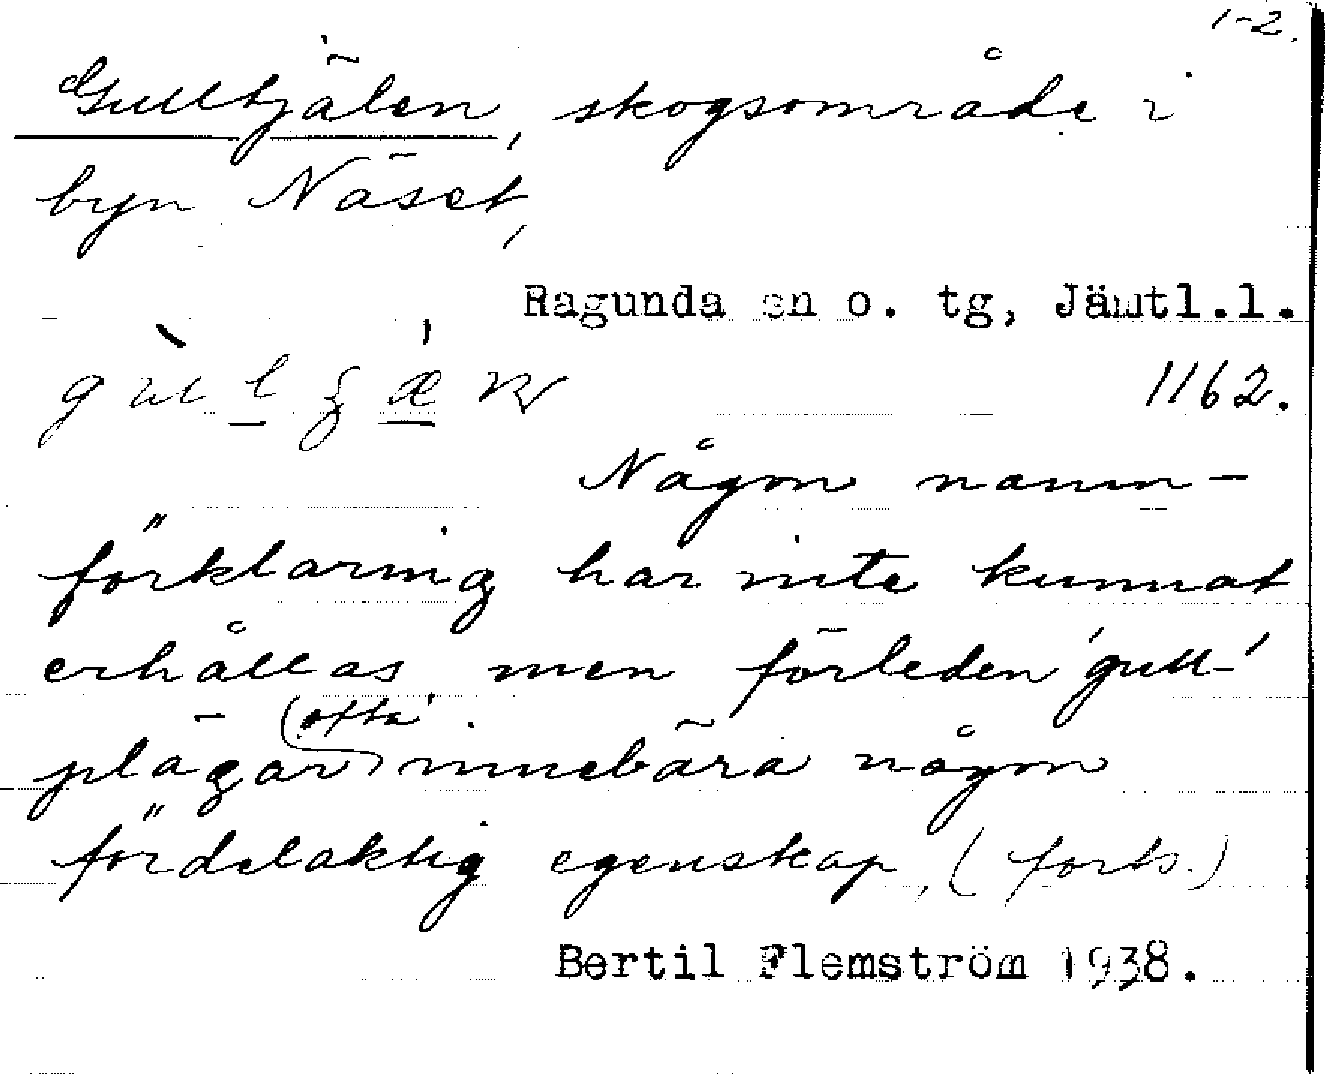 1-2.
Gulltjälen, skogsområde i
byn Näset,
Ragunda sn o. tg, Jämtl.l.
1162.
Någon namn-
förklaring har inte kunnat
erhållas men förleden 'gull-'
plägar (ofta) innebära någon
fördelaktig egenskap, (forts.)
Bertil Flemström 1938.